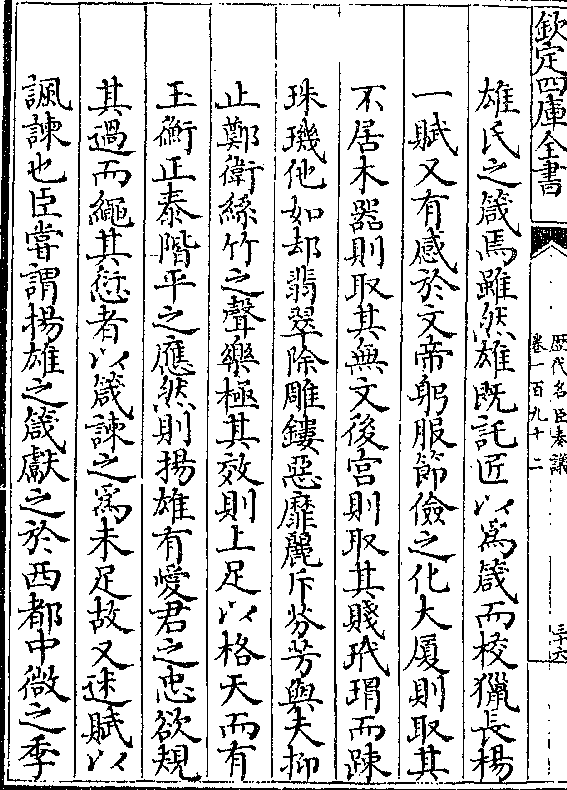 欽定四庫全書
歴代名臣奏議
卷一百九十二
三十六
雄氏之箴焉雖然雄既託匠以為箴而校獵長楊
一賦又有感於文帝躬服節儉之化大厦則取其
不居木器則取其無文後宮則取其賤玳瑁而踈
珠璣他如却翡翠除雕鏤惡靡麗斥芬芳與夫抑
止鄭衛絲竹之聲樂極其效則上足以格天而有
玉衡正泰階平之應然則揚雄有愛君之忠欲規
其過而繩其愆者以箴諫之為未足故又述賦以
諷諫也臣嘗謂揚雄之箴獻之於西都中微之季